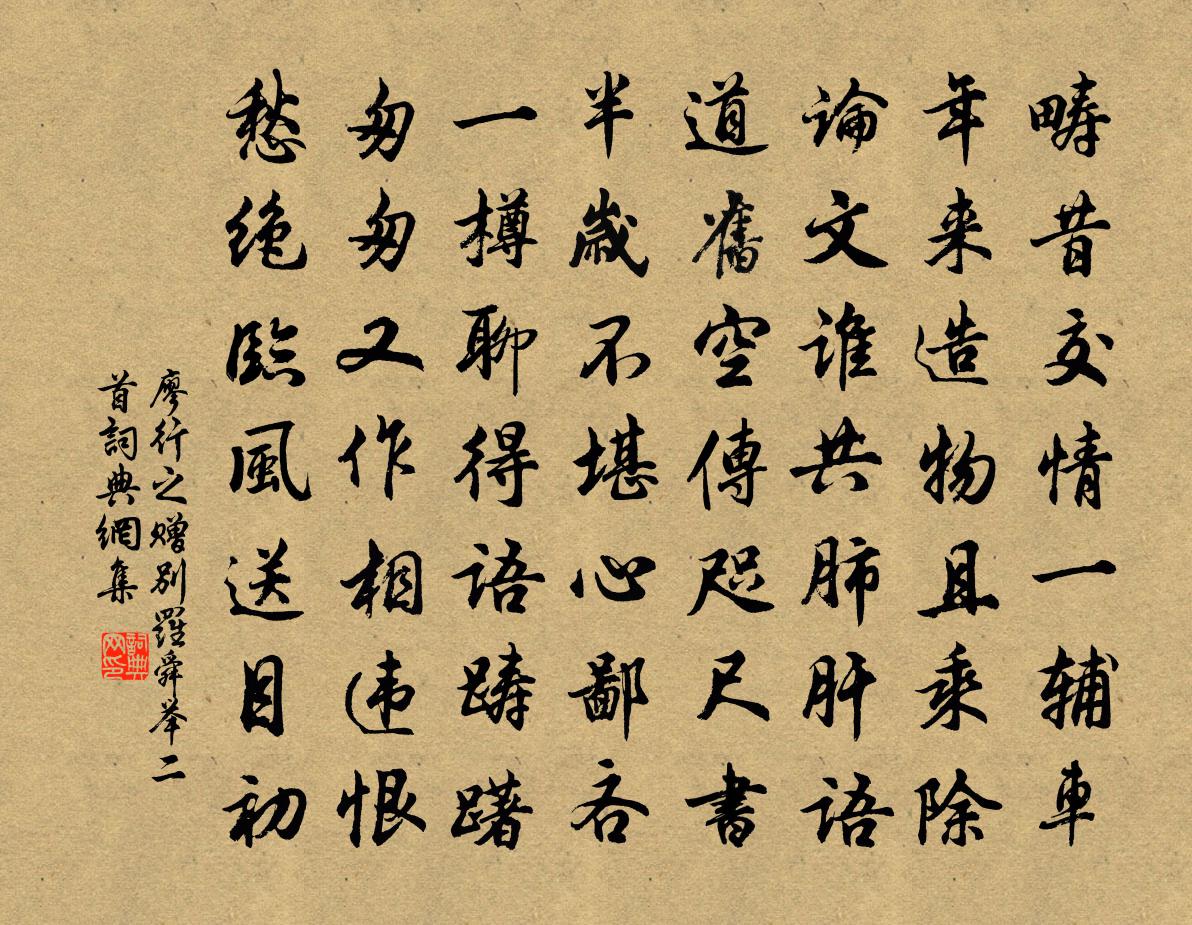 畴昔交情一辅車
年来造物且乘除
論文谁共肺肝語
道舊空傳咫尺書
半歲不堪心鄙吝
一樽聊得語踌躇
匆匆又作相违恨
愁绝臨風送目初
廖行之赠别羅舜举二
首詞典網集
詞典
网印